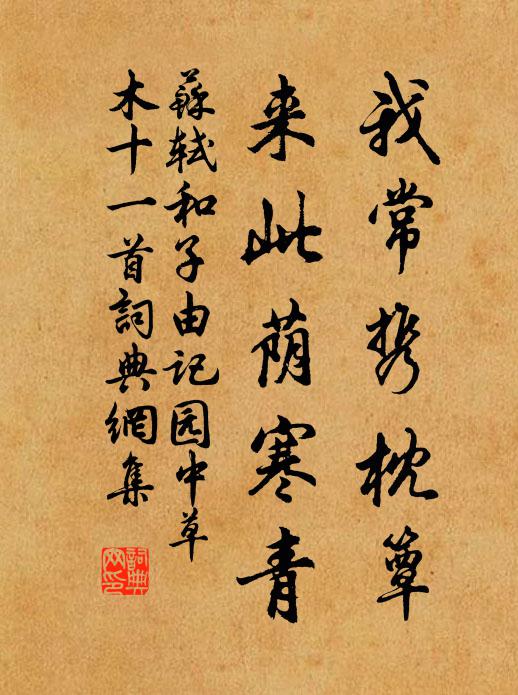 我常携枕簟
来此荫寒青
蘇軾和子由记园中草
木十一首詞典網集
詞典
网印